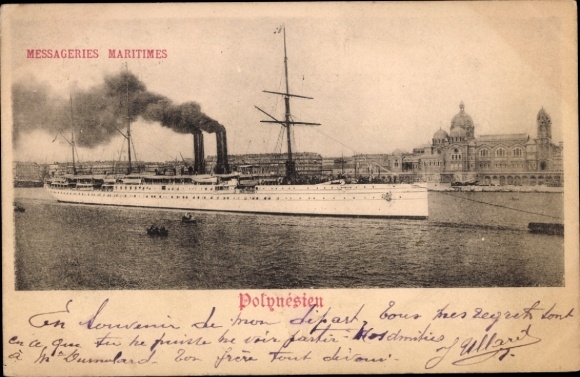 MESSAGERIES MARITIMES
Polynésien
En souvenir de mon départ. Tous mes regrets sont
en ce que tu ne puisse me voir partir
à Mr Ton frère tout dévoué.